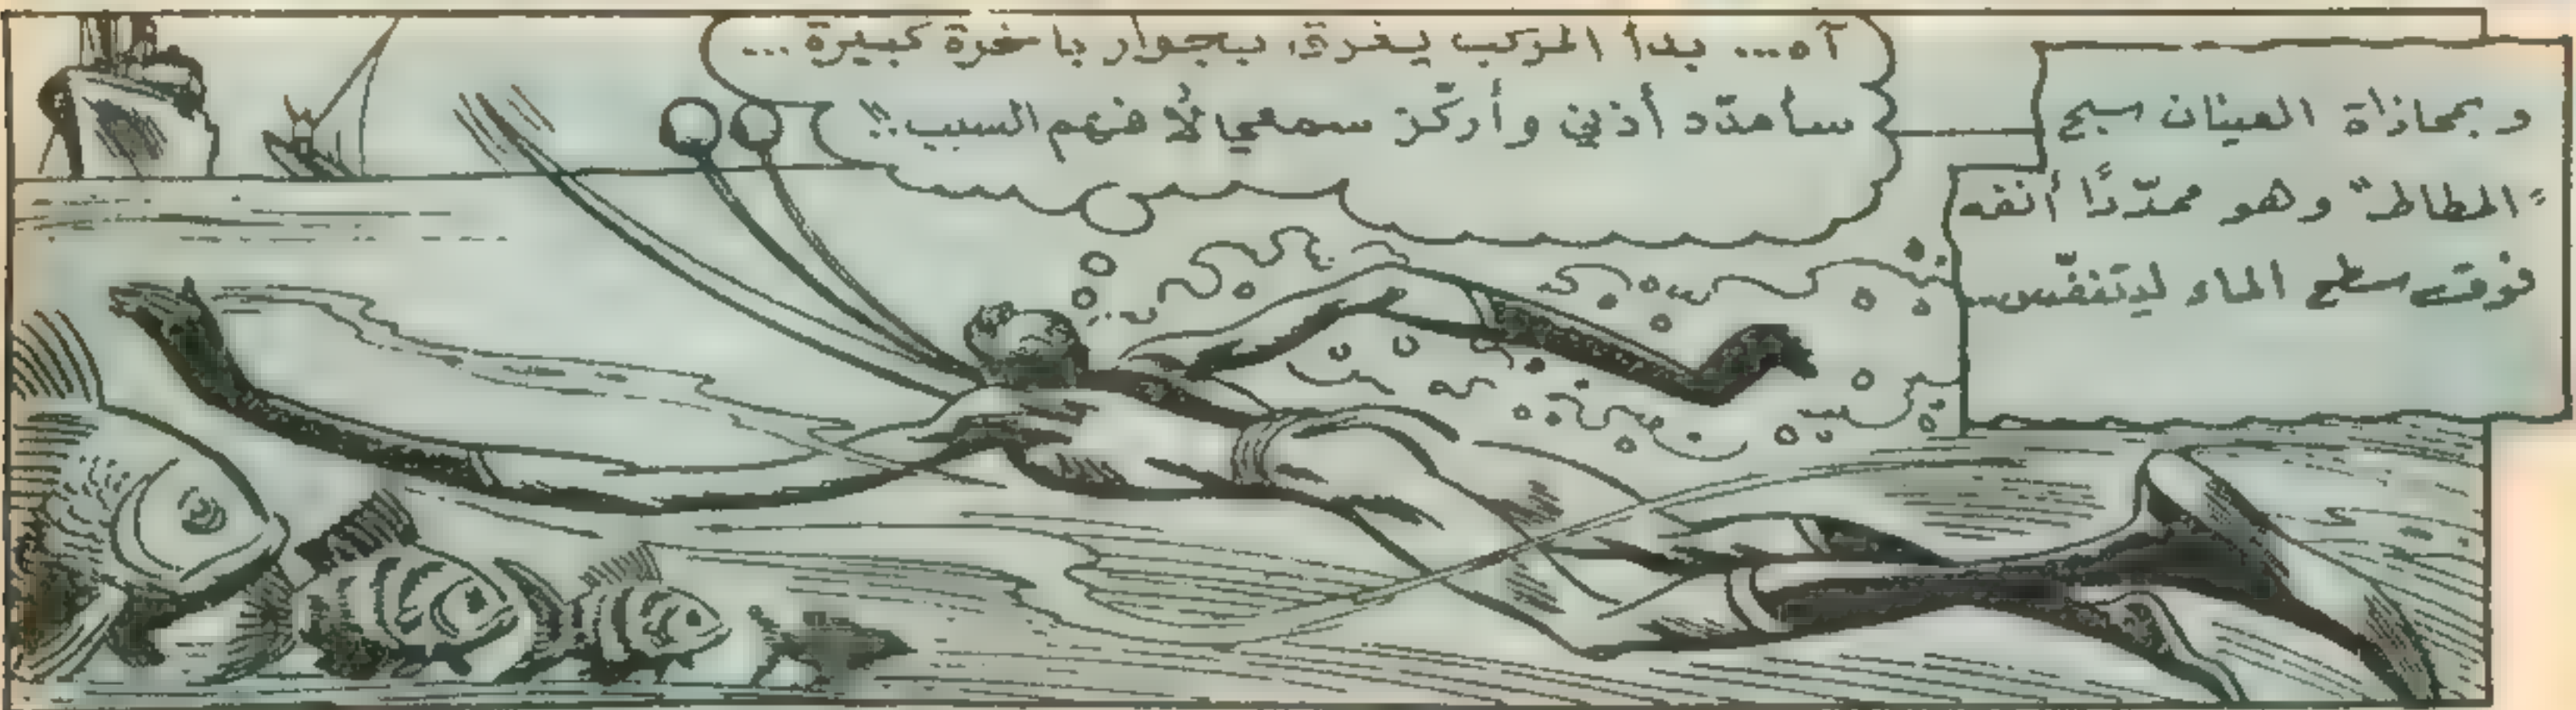 وبمحاذاة العينان سبح
"المطاط" وهو ممدّدًا أنفه
فوق سطح الماء ليتنفّس
آه... بدأ المركب يغرق بجوار باخرة كبيرة...
سأمدّد أذني وأركّز سمعي لأفهم السبب..!